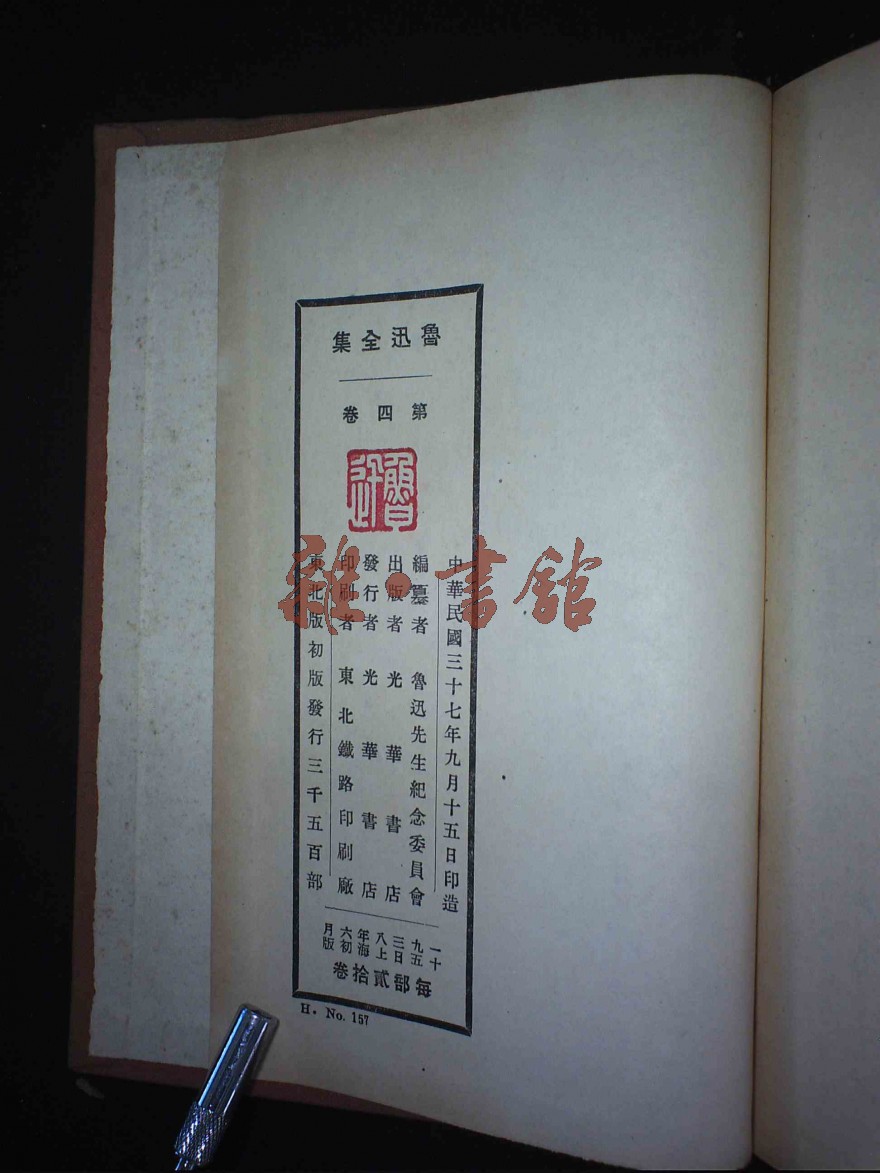 魯迅全集
第四卷
魯迅
中華民國三十七年九月十五日印造
編纂者 魯迅先生紀念委員會
出版者 光華書店
發行者 光華書店
印刷者 東北鐵路印刷廠
東北版初版發行三千五百部
一九三八年六月
十五日上海初版
每部貳拾卷
H. No. 157
雜·書館